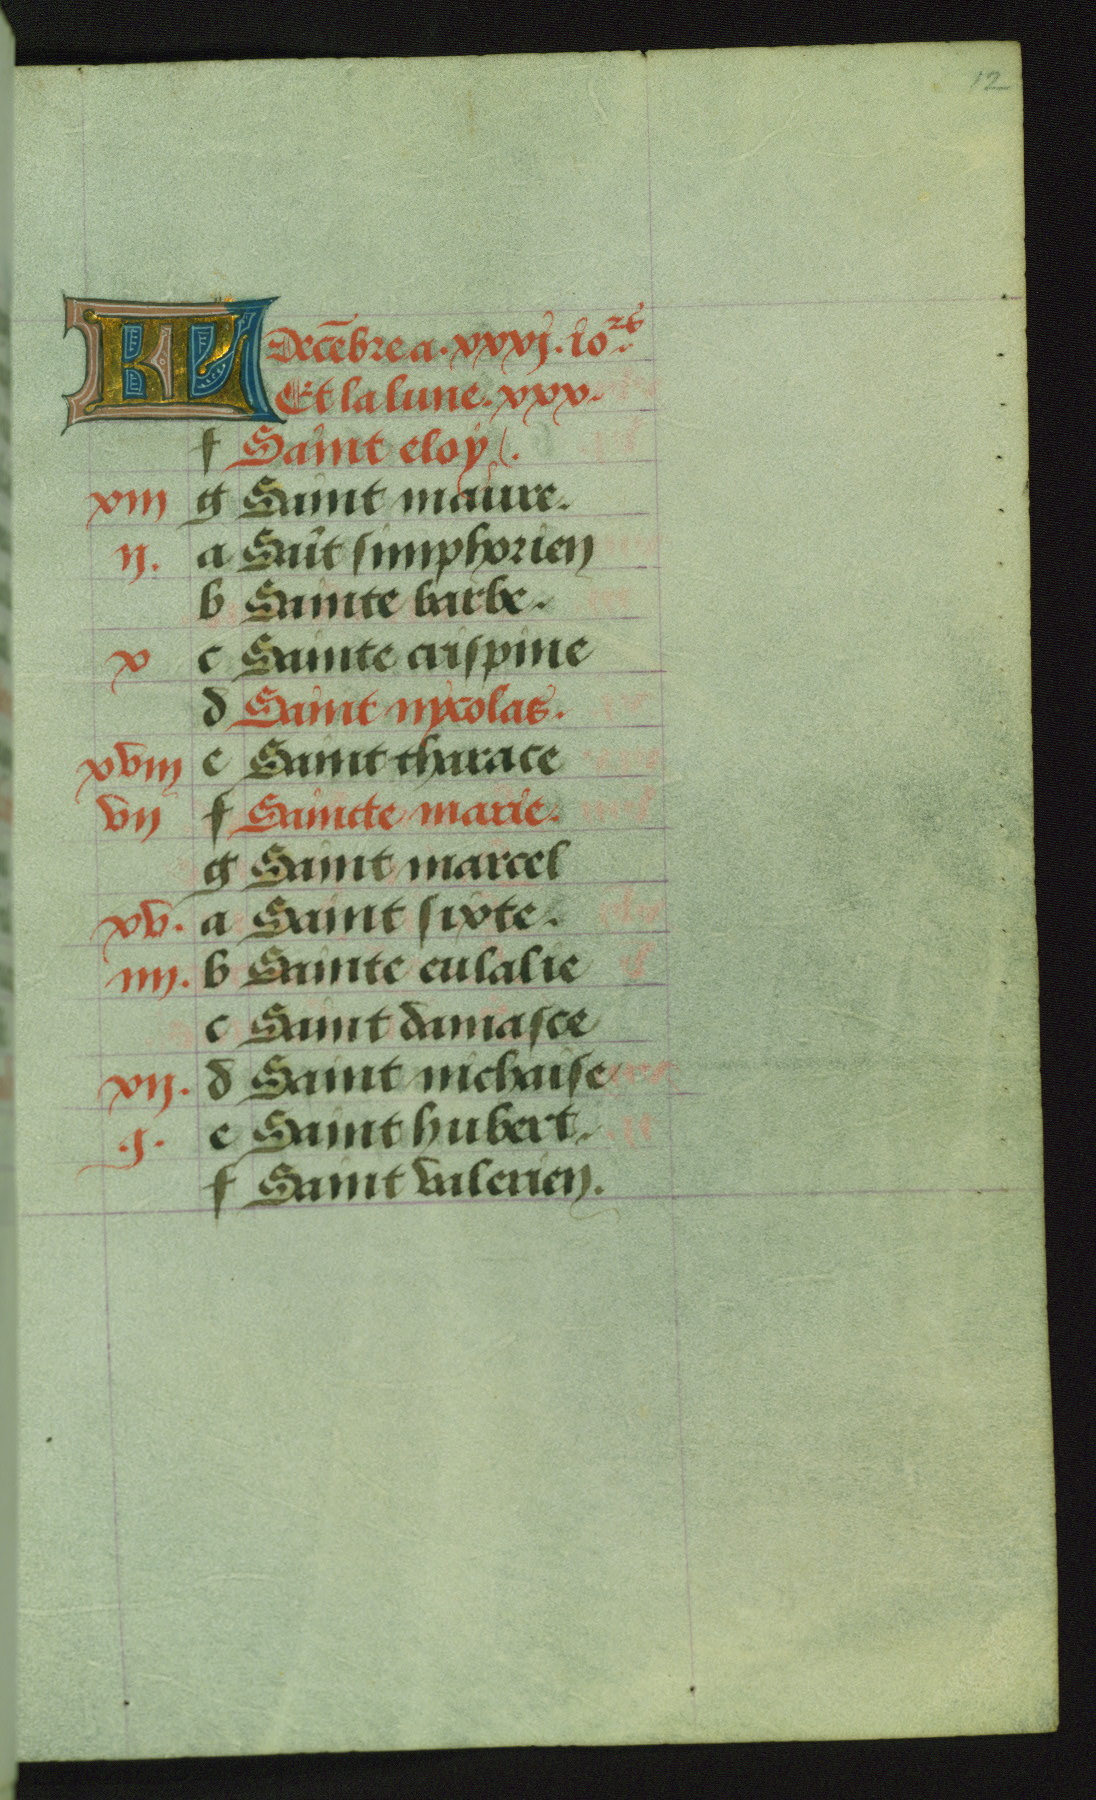 12
KL Decēbre a. xxxj. iors.
Et la lune. xxx.
f Saint eloy.
xiii g Saint maure.
ij. a Saīt simphorien
b Sainte barbe.
x c Sainte crispine
d Saint nycolas.
xviij e Saint tharace
vij f Saincte marie.
g Saint marcel
xv. a Saint sixte.
iiij. b Sainte eulalie
c Saint damasce
xij. d Saint nichaise
.j. e Saint hubert.
f Saint valerien.